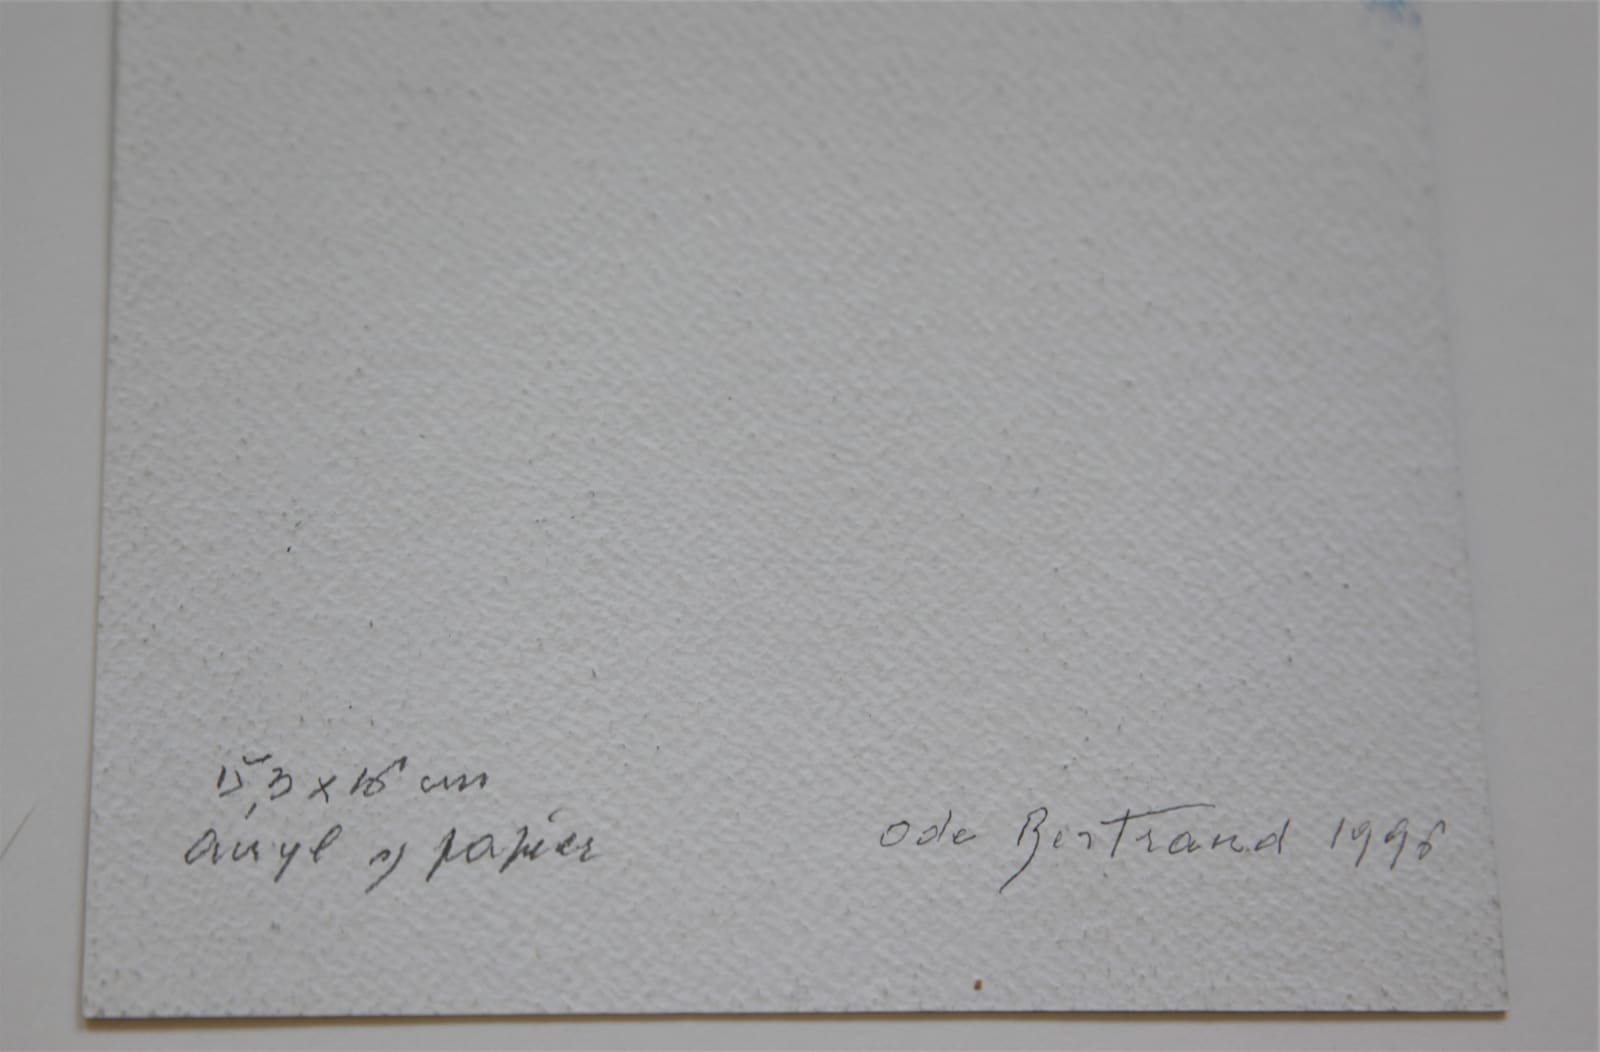 15,3 x 16 cm
acryl s/ papier
Ode Bertrand 1996